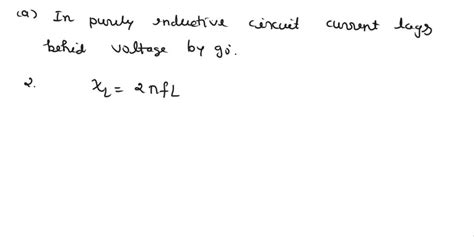 (a) In purely inductive circuit current lags
behid voltage by 90°.
2. X_L = 2πfL